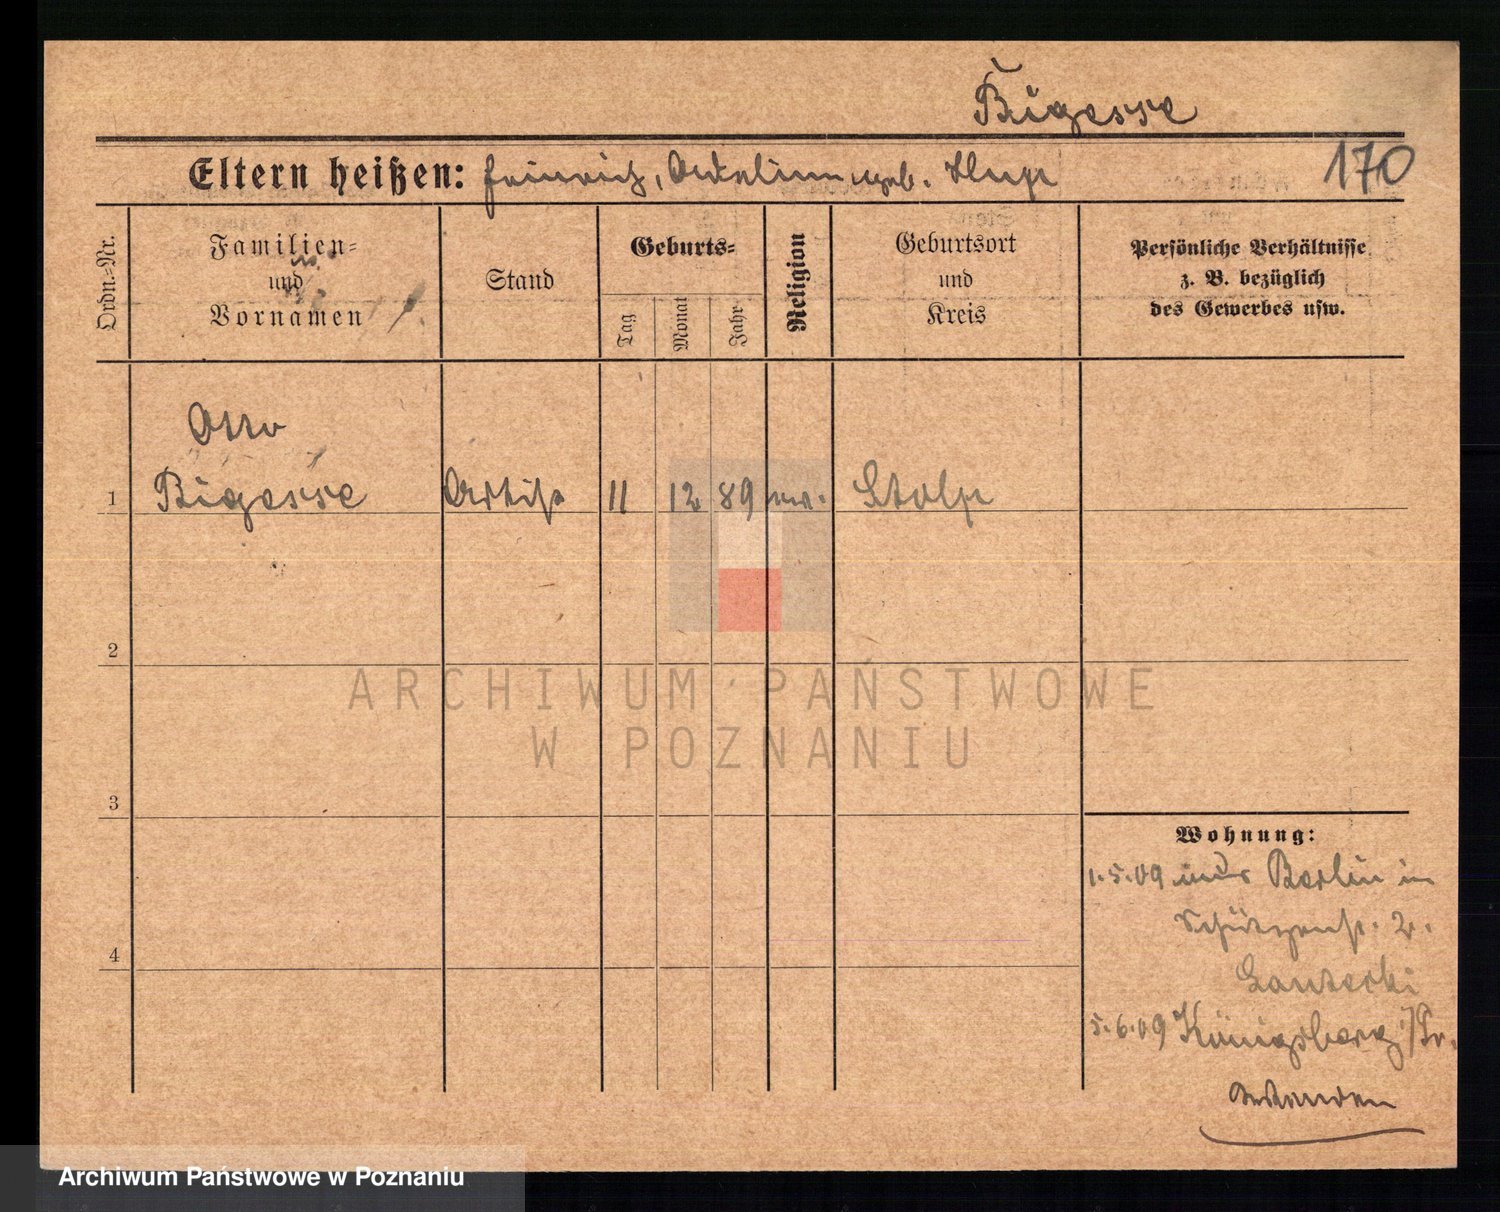 Bigesse
Eltern heißen: Heinrich, geb.
170
Ordn.=Nr.
Familien=
und
Vornamen
Stand
Geburts=
Tag
Monat
Jahr
Religion
Geburtsort
und
Kreis
Persönliche Verhältnisse
z. B. bezüglich
des Gewerbes usw.
Otto
1 Bigesse Artist 11 12 89 ev. Stolp
2
3
4
ARCHIWUM PAŃSTWOWE
W POZNANIU
Wohnung:
1.5.09 aus Berlin in
Schützenst. 2.
5.6.09 Königsberg i/Pr.
Archiwum Państwowe w Poznaniu